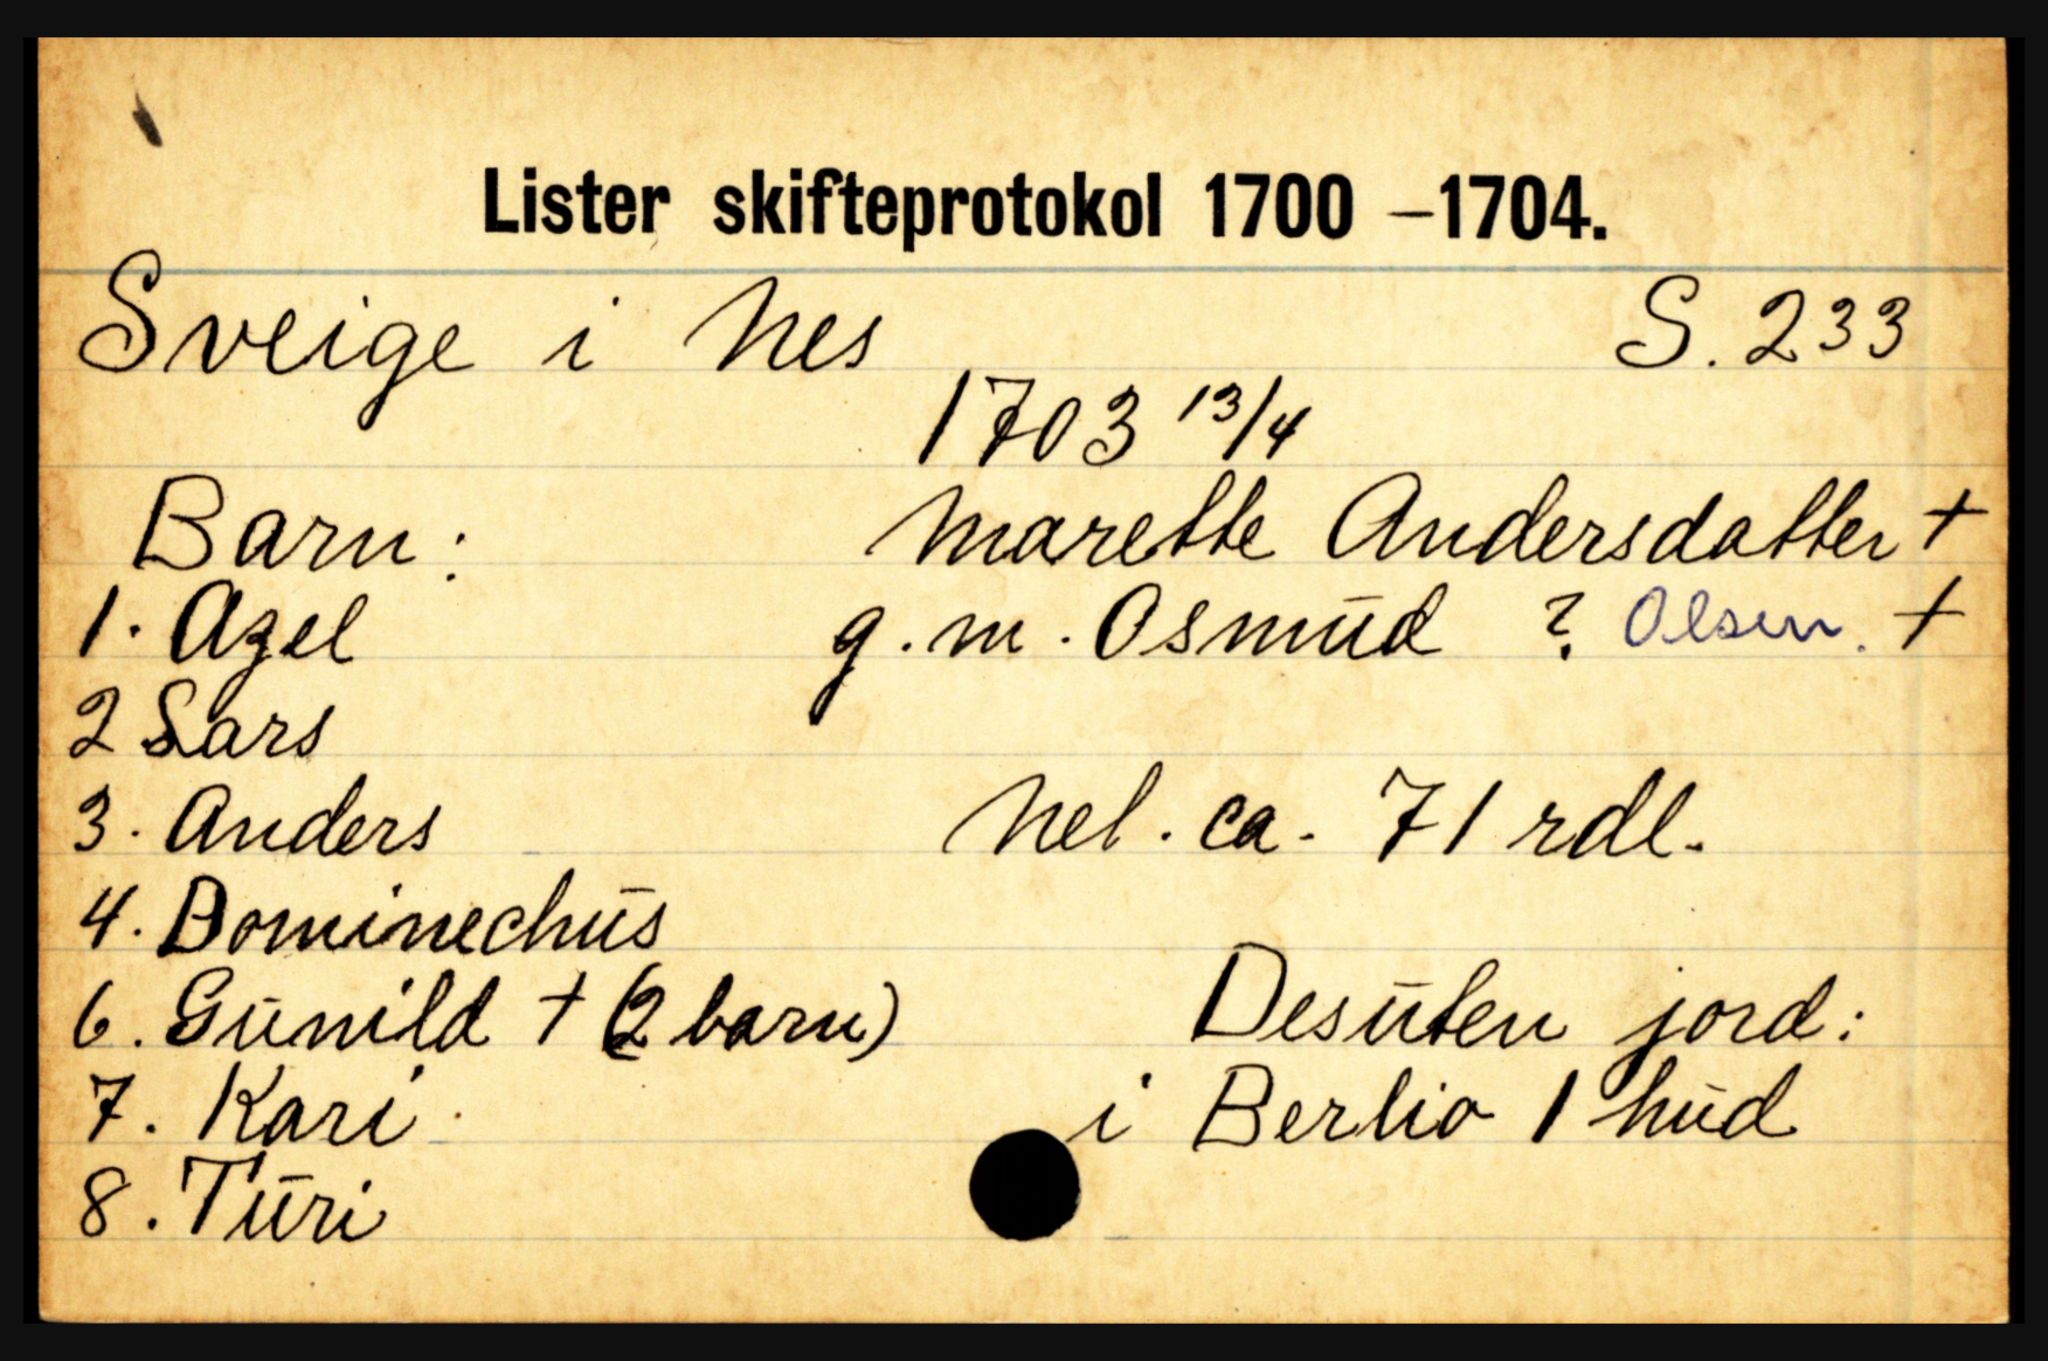 Lister skifteprotokol 1700 –1704.
Sveige i Nes S. 233
1703 13/4
Barn: Marette Andersdatter †
1. Azel g.m. Osmūd ? Olsen. †
2 Lars
3. Anders Nel. ca. 71 rdl.
4. Dominechūs
6. Gūnild † (2 barn) Desūten jord:
7. Kari i Berlio 1 hūd
8. Tūri